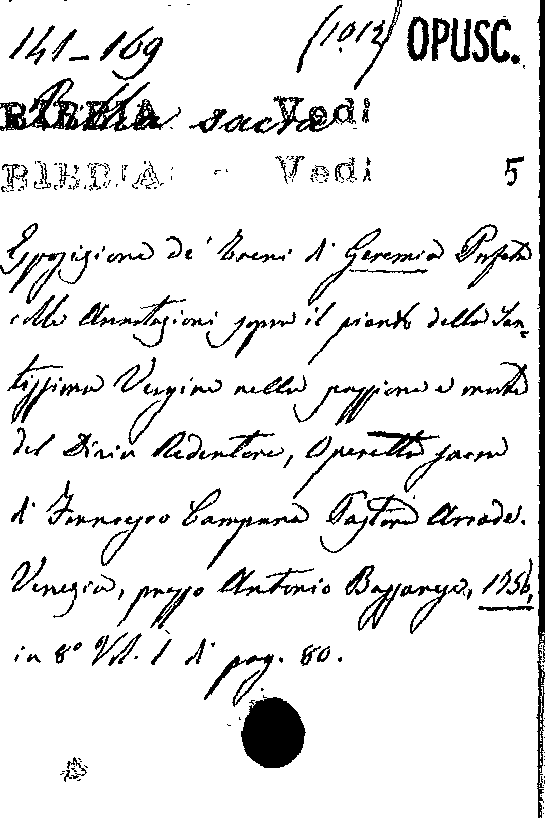 141-169 (1012) OPUSC.
BIBBIA Vedi
Bibbia sacra
BIBBIA - Vedi 5
Esposizione de' Treni di Geremia Profeta
colle Annotazioni sopra il pianto della San-
tissima Vergine nella passione e morte
del Divin Redentore, Operetta sacra
di Campana Pastore Arcade.
Venezia, presso Antonio Bassanese, 1756,
in 8° Vol. 1 di pag. 80.